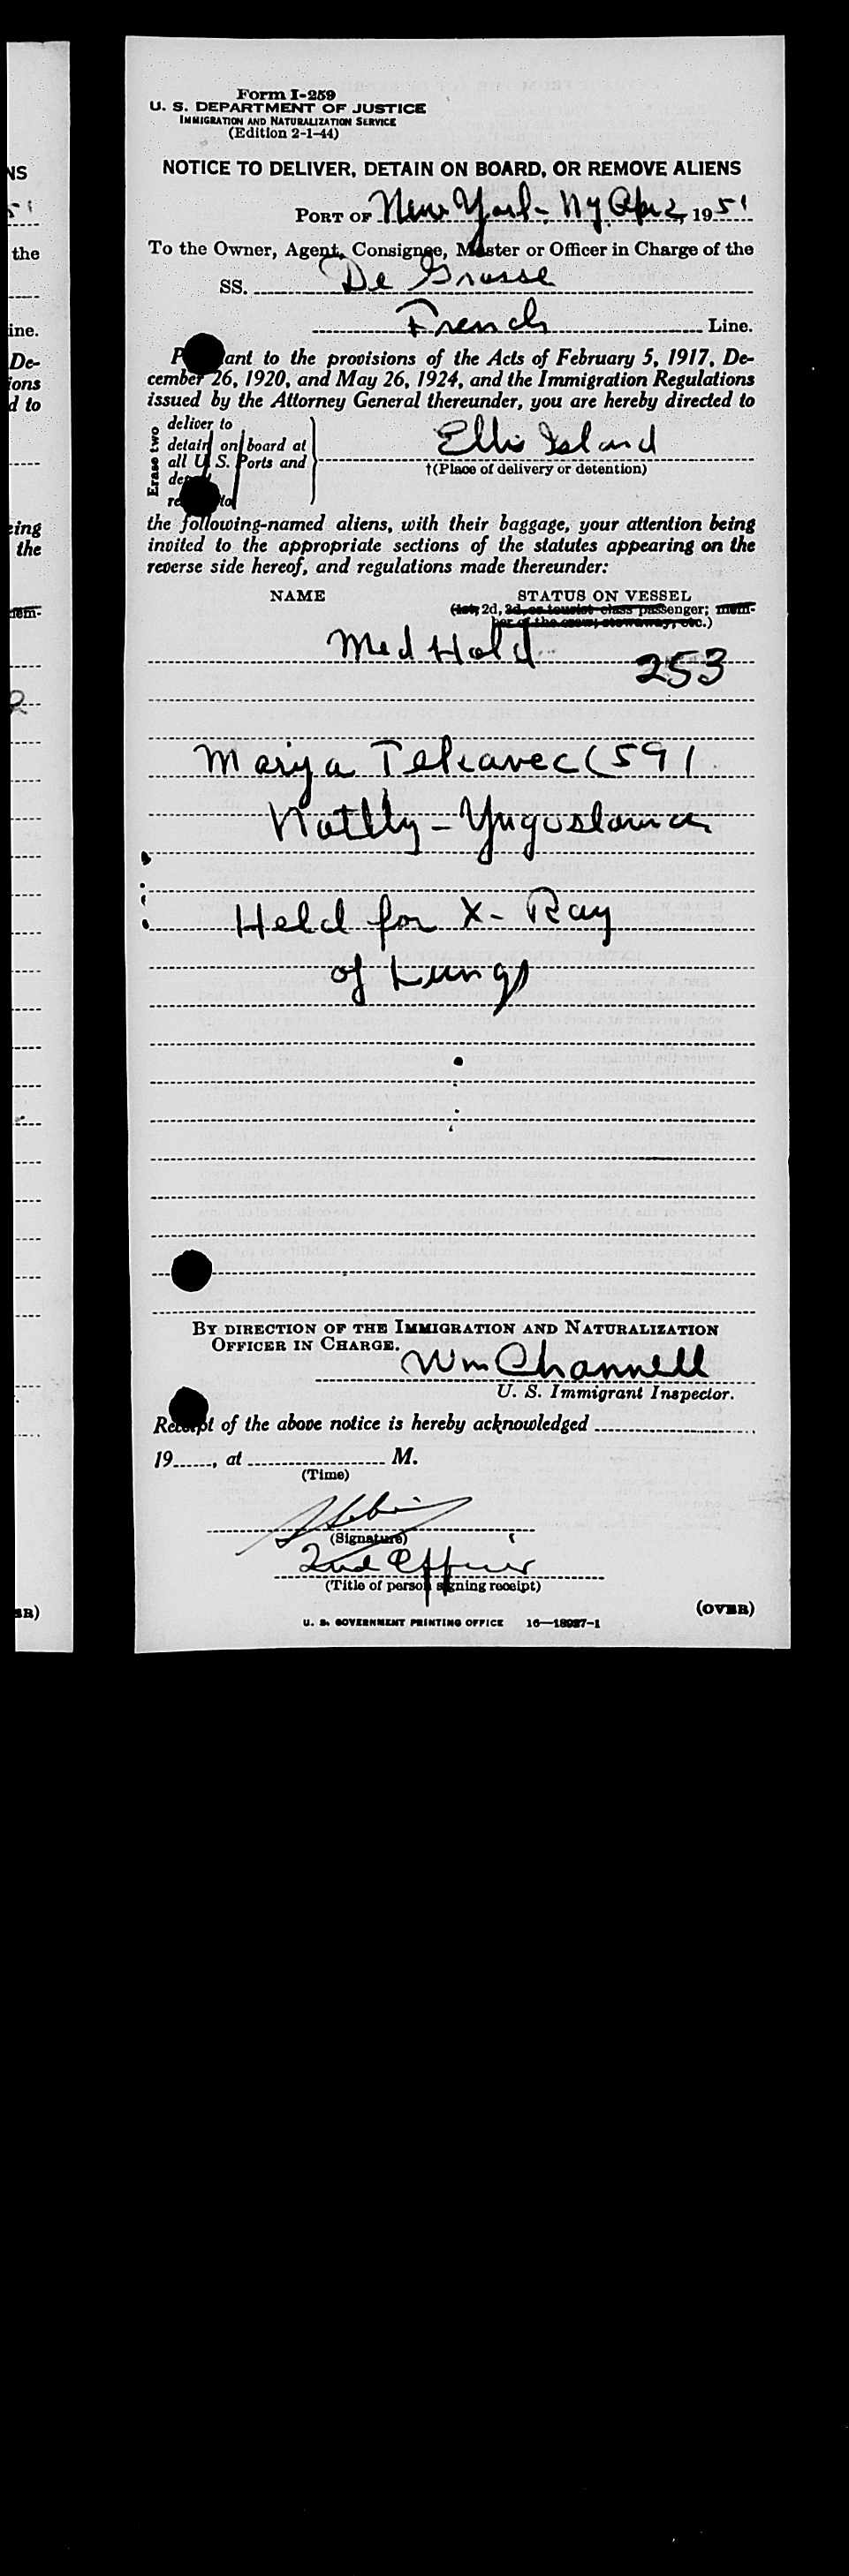 NS
51
the
ine.
De-
ions
d to
eing
the
mem-
2
ER)
Form I-259
U. S. DEPARTMENT OF JUSTICE
IMMIGRATION AND NATURALIZATION SERVICE
(Edition 2-1-44)
NOTICE TO DELIVER, DETAIN ON BOARD, OR REMOVE ALIENS
PORT OF New York, NY, Apr 2, 1951
To the Owner, Agent, Consignee, Master or Officer in Charge of the
SS. De Grasse
French Line.
P ant to the provisions of the Acts of February 5, 1917, De-
cember 26, 1920, and May 26, 1924, and the Immigration Regulations
issued by the Attorney General thereunder, you are hereby directed to
Erase two
deliver to
detain on board at
all U. S. Ports and
de
re to
Ellis Island
†(Place of delivery or detention)
the following-named aliens, with their baggage, your attention being
invited to the appropriate sections of the statutes appearing on the
reverse side hereof, and regulations made thereunder:
NAME STATUS ON VESSEL
(1st, 2d, 3d, or tourist class passenger; mem-
ber of the crew; stowaway, etc.)
Med Hold
253
Marija Telcavec (59)
Natlty - Yugoslavia
Held for X-Ray
of Lungs
BY DIRECTION OF THE IMMIGRATION AND NATURALIZATION
OFFICER IN CHARGE.
Wm Channell
U. S. Immigrant Inspector.
Receipt of the above notice is hereby acknowledged
19 , at M.
(Time)
(Signature)
2nd Officer
(Title of person signing receipt)
(OVER)
U. S. GOVERNMENT PRINTING OFFICE 16—18987-1